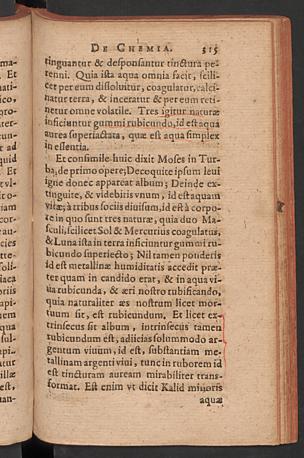 DE CHEMIA. 315
tinguantur & desponsantur tinctura pe-
renni. Quia ista aqua omnia facit, scili-
cet per eum dissoluitur, coagulatur, calci-
natur terra, & inceratur & per eum reti-
netur omne volatile. Tres igitur naturæ
inficiuntur gummi rubicundo, id est aqua
aurea superiactata, quæ est aqua simplex
in essentia.
Et consimile huic dixit Moses in Tur-
ba, de primo opere; Decoquite ipsum leui
igne donec appareat album; Deinde ex-
tinguite, & videbitis vnum, id est aquam
vitæ; à tribus sociis eius sum, id est à corpo-
re in quo sunt tres naturæ, quia duo Ma-
sculi, scilicet Sol & Mercurius coagulatus,
& Luna ista in terra inficiuntur gummi ru-
bicundo superiecto; Nil tamen ponderis
id est metallinæ humiditatis accedit præ-
ter quam in candido erat, & in aqua vi-
ua rubicunda, & æri nostro rubificando,
quia naturaliter æs nostrum licet mor-
tuum sit, est rubicundum. Et licet ex-
trinsecus sit album, intrinsecus tamen
rubicundum est, adiicias solummodo ar-
gentum viuum, id est, substantiam me-
tallinam argenti viui, tunc in ruborem id
est tincturam auream mirabiliter trans-
format. Est enim vt dicit Kalid minoris
aquæ